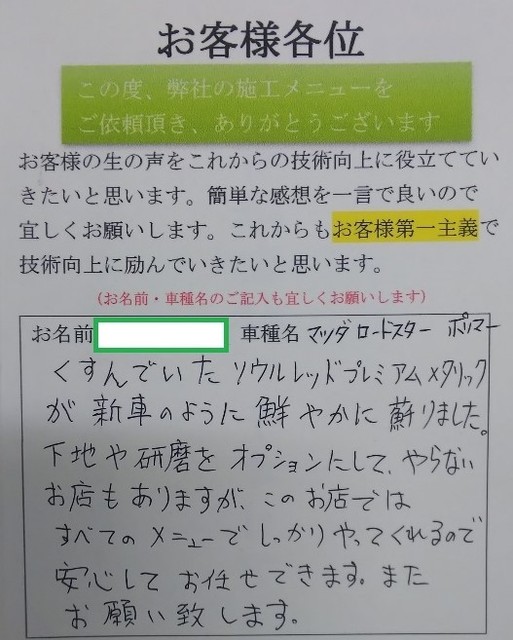 お客様各位
この度、弊社の施工メニューを
ご依頼頂き、ありがとうございます
お客様の生の声をこれからの技術向上に役立ててい
きたいと思います。簡単な感想を一言で良いので
宜しくお願いします。これからもお客様第一主義で
技術向上に励んでいきたいと思います。
(お名前・車種名のご記入も宜しくお願いします)
お名前 車種名 マツダ ロードスター ポリマー
くすんでいた ソウルレッドプレミアムメタリック
が 新車のように 鮮やかに 蘇りました。
下地や研磨を オプションにして、やらない
お店もありますが、このお店では
すべての メニューで しっかり やってくれるので
安心して お任せできます。また
お願い致します。